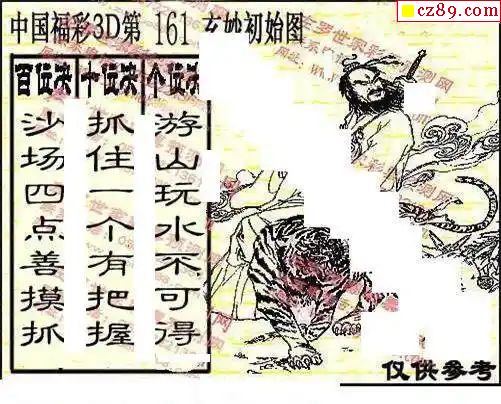 cz89.com
中国福彩3D第 161 玄妙初始图
百位决 十位决 个位决
沙场四点善摸抓
抓住一个有把握
游山玩水不可得
仅供参考